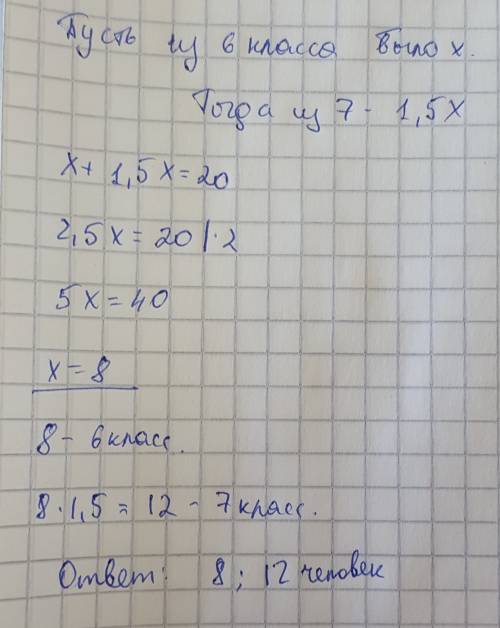 Пусть из 6 класса было x.
Тогда из 7 - 1,5x
x + 1,5x = 20
2,5x = 20 |·2
5x = 40
x = 8
8 - 6 класс.
8·1,5 = 12 - 7 класс.
Ответ: 8; 12 человек